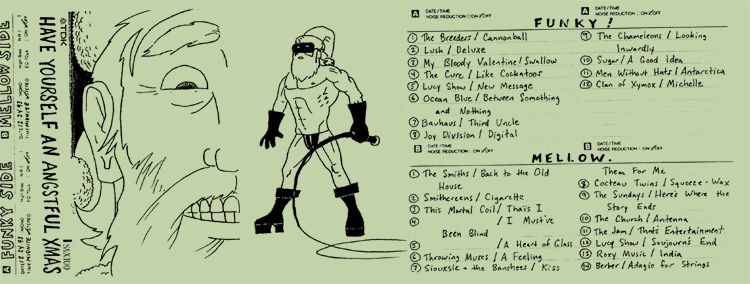 MELLOW SIDE
FUNKY SIDE
TDK
HAVE YOURSELF AN ANGSTFUL XMAS
A
DATE/TIME
NOISE REDUCTION □ON □OFF
FUNKY!
① The Breeders / Cannonball
② Lush / Deluxe
③ My Bloody Valentine / Swallow
④ The Cure / Like Cockatoos
⑤ Lucy Show / New Message
⑥ Ocean Blue / Between Something
and Nothing
⑦ Bauhaus / Third Uncle
⑧ Joy Division / Digital
A
DATE/TIME
NOISE REDUCTION □ON □OFF
⑨ The Chameleons / Looking
Inwardly
⑩ Sugar / A Good Idea
⑪ Men Without Hats / Antarctica
⑫ Clan of Xymox / Michelle
B
DATE/TIME
NOISE REDUCTION □ON □OFF
MELLOW.
① The Smiths / Back to the Old
House
② Smithereens / Cigarette
③ This Mortal Coil / Thais I
④ / I Must've
Been Blind
⑤ / A Heart of Glass
⑥ Throwing Muses / A Feeling
⑦ Siouxsie + the Banshees / Kiss
B
DATE/TIME
NOISE REDUCTION □ON □OFF
Them For Me
⑧ Cocteau Twins / Squeeze-Wax
⑨ The Sundays / Here's Where the
Story Ends
⑩ The Church / Antenna
⑪ The Jam / That's Entertainment
⑫ Lucy Show / Soujourn's End
⑬ Roxy Music / India
⑭ Barber / Adagio for Strings